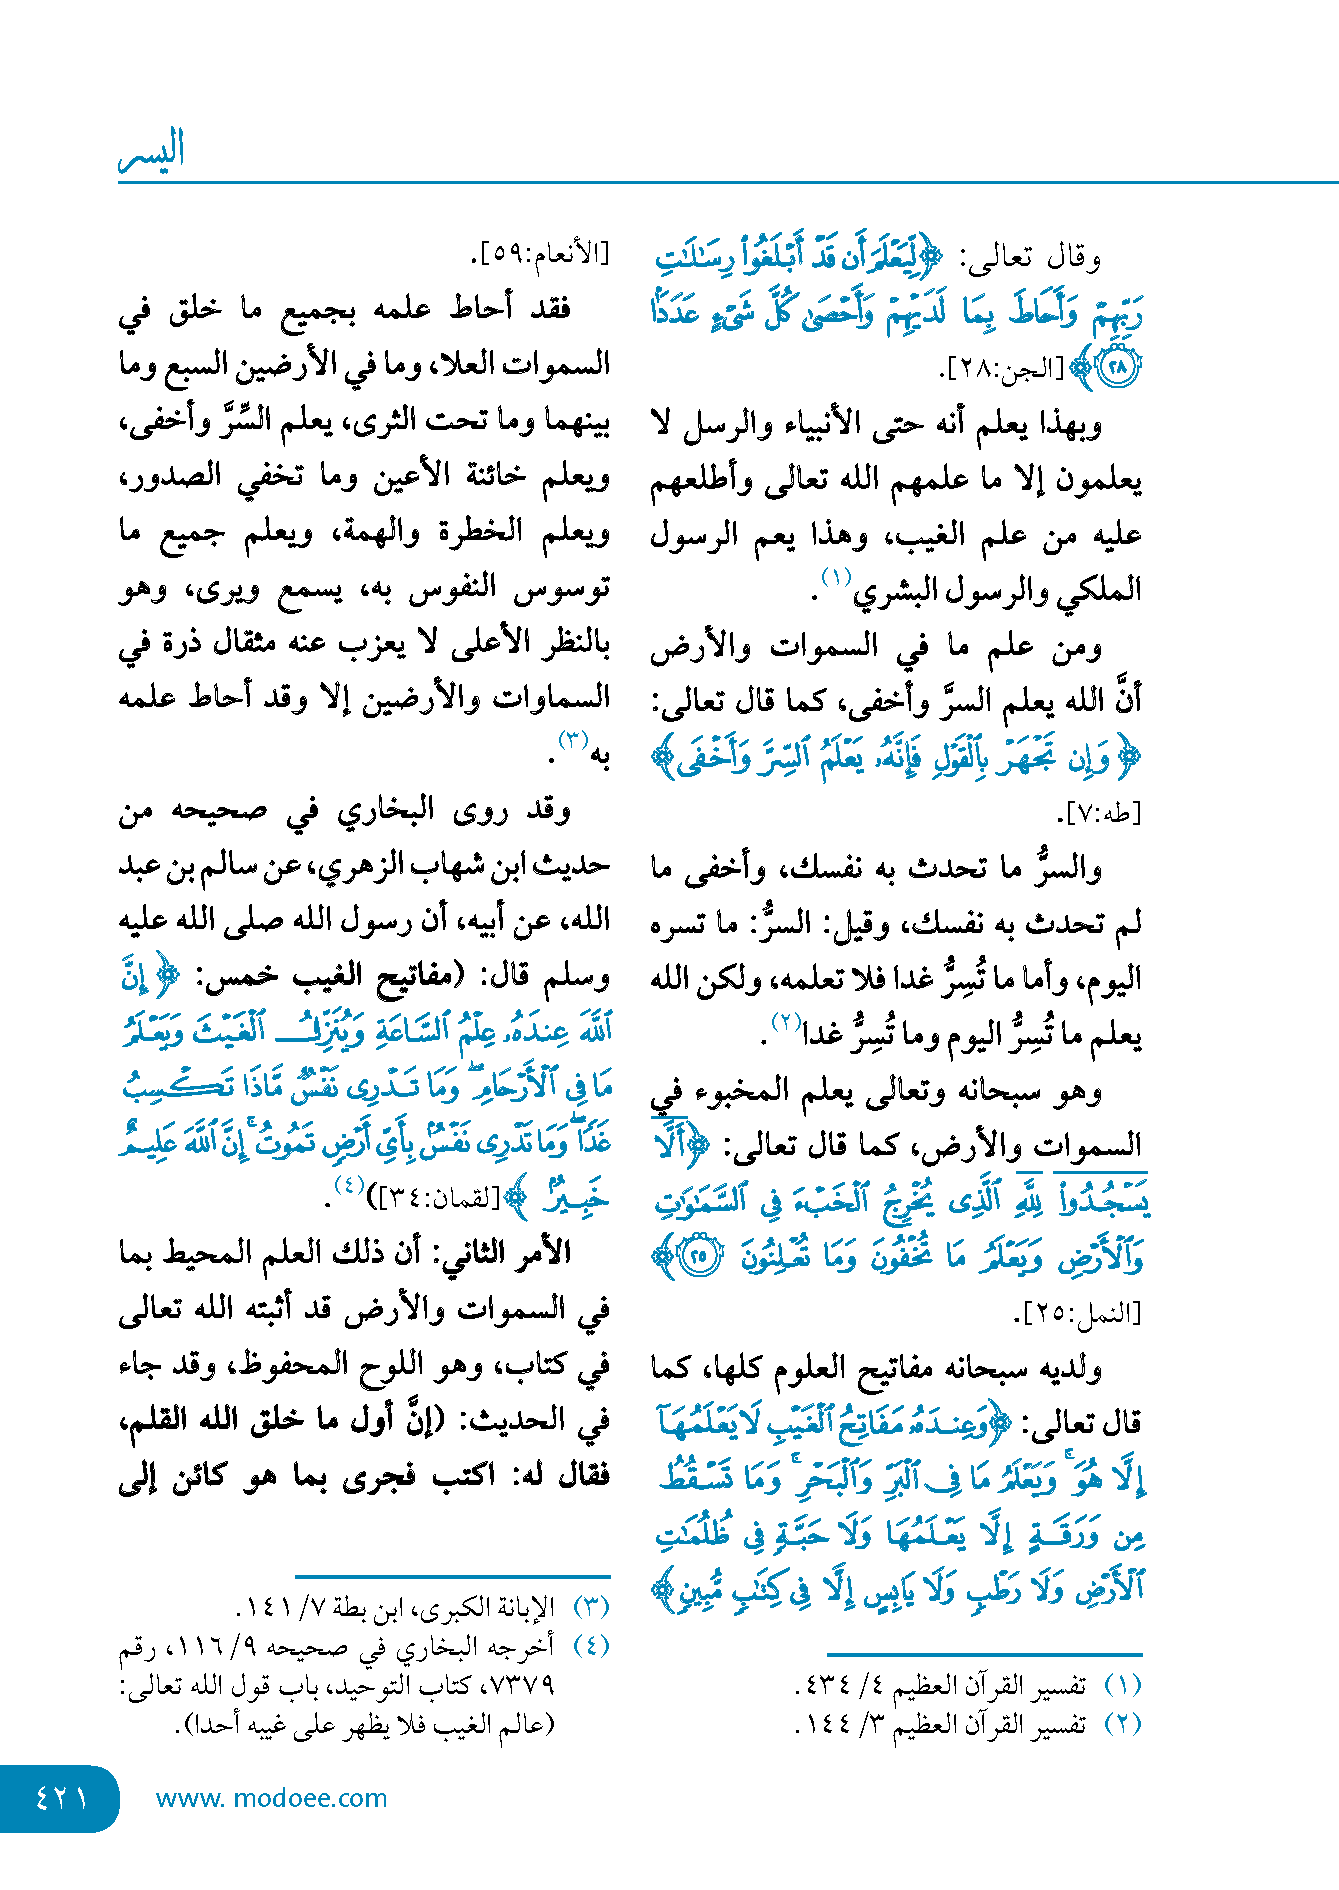 اليسر
وقال تعالى: ﴿لِّيَعْلَمَ أَن قَدْ أَبْلَغُوا۟ رِسَٰلَٰتِ
رَبِّهِمْ وَأَحَاطَ بِمَا لَدَيْهِمْ وَأَحْصَىٰ كُلَّ شَىْءٍ عَدَدًۢا
۲۸﴾ [الجن:۲۸].
وبهذا يعلم أنه حتى الأنبياء والرسل لا
يعلمون إلا ما علمهم الله تعالى وأطلعهم
عليه من علم الغيب، وهذا يعم الرسول
الملكي والرسول البشري(١).
ومن علم ما في السموات والأرض
أنَّ الله يعلم السرَّ وأخفى، كما قال تعالى:
﴿وَإِن تَجْهَرْ بِٱلْقَوْلِ فَإِنَّهُۥ يَعْلَمُ ٱلسِّرَّ وَأَخْفَى﴾
[طه:٧].
والسرُّ ما تحدث به نفسك، وأخفى ما
لم تحدث به نفسك، وقيل: السرُّ: ما تسره
اليوم، وأما ما تُسِرُّ غدا فلا تعلمه، ولكن الله
يعلم ما تُسِرُّ اليوم وما تُسِرُّ غدا(٢).
وهو سبحانه وتعالى يعلم المخبوء في
السموات والأرض، كما قال تعالى: ﴿أَلَّا
يَسْجُدُوا۟ لِلَّهِ ٱلَّذِى يُخْرِجُ ٱلْخَبْءَ فِى ٱلسَّمَٰوَٰتِ
وَٱلْأَرْضِ وَيَعْلَمُ مَا تُخْفُونَ وَمَا تُعْلِنُونَ ٢٥﴾
[النمل:٢٥].
ولديه سبحانه مفاتيح العلوم كلها، كما
قال تعالى: ﴿وَعِندَهُۥ مَفَاتِحُ ٱلْغَيْبِ لَا يَعْلَمُهَآ
إِلَّا هُوَ ۚ وَيَعْلَمُ مَا فِى ٱلْبَرِّ وَٱلْبَحْرِ ۚ وَمَا تَسْقُطُ
مِن وَرَقَةٍ إِلَّا يَعْلَمُهَا وَلَا حَبَّةٍ فِى ظُلُمَٰتِ
ٱلْأَرْضِ وَلَا رَطْبٍ وَلَا يَابِسٍ إِلَّا فِى كِتَٰبٍ مُّبِينٍ﴾
(١) تفسير القرآن العظيم ٤/ ٤٣٤.
(٢) تفسير القرآن العظيم ٣/ ١٤٤.
[الأنعام:٥٩].
فقد أحاط علمه بجميع ما خلق في
السموات العلا، وما في الأرضين السبع وما
بينهما وما تحت الثرى، يعلم السِّرَّ وأخفى،
ويعلم خائنة الأعين وما تخفي الصدور،
ويعلم الخطرة والهمة، ويعلم جميع ما
توسوس النفوس به، يسمع ويرى، وهو
بالنظر الأعلى لا يعزب عنه مثقال ذرة في
السماوات والأرضين إلا وقد أحاط علمه
به(٣).
وقد روى البخاري في صحيحه من
حديث ابن شهاب الزهري، عن سالم بن عبد
الله، عن أبيه، أن رسول الله صلى الله عليه
وسلم قال: (مفاتيح الغيب خمس: ﴿إِنَّ
ٱللَّهَ عِندَهُۥ عِلْمُ ٱلسَّاعَةِ وَيُنَزِّلُ ٱلْغَيْثَ وَيَعْلَمُ
مَا فِى ٱلْأَرْحَامِ ۖ وَمَا تَدْرِى نَفْسٌ مَّاذَا تَكْسِبُ
غَدًا ۖ وَمَا تَدْرِى نَفْسٌۢ بِأَىِّ أَرْضٍ تَمُوتُ ۚ إِنَّ ٱللَّهَ عَلِيمٌ
خَبِيرٌۢ﴾ [لقمان:٣٤])(٤).
الأمر الثاني: أن ذلك العلم المحيط بما
في السموات والأرض قد أثبته الله تعالى
في كتاب، وهو اللوح المحفوظ، وقد جاء
في الحديث: (إنَّ أول ما خلق الله القلم،
فقال له: اكتب فجرى بما هو كائن إلى
(٣) الإبانة الكبرى، ابن بطة ٧/ ١٤١.
(٤) أخرجه البخاري في صحيحه ٩/ ١١٦، رقم
٧٣٧٩، كتاب التوحيد، باب قول الله تعالى:
(عالم الغيب فلا يظهر على غيبه أحدا).
www. modoee.com
٤٢١